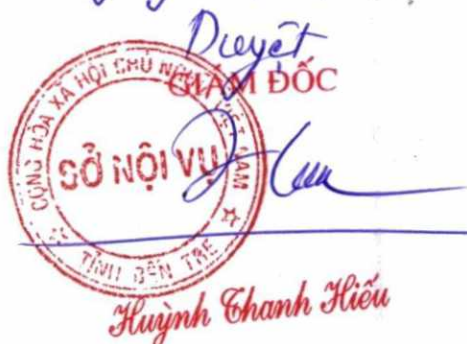 Duyệt
GIÁM ĐỐC
CỘNG HÒA XÃ HỘI CHỦ NGHĨA VIỆT NAM
SỞ NỘI VỤ
TỈNH BẾN TRE
Huỳnh Thanh Hiếu